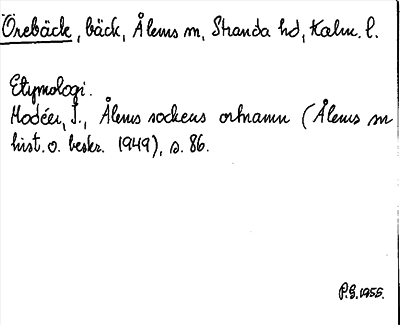 Örebäck, bäck, Ålems sn, Stranda hd, Kalm. l.
Etymologi.
Modéer, I., Ålems sockens ortnamn (Ålems sn
hist. o. beskr. 1949), s. 86.
P.G. 1955.